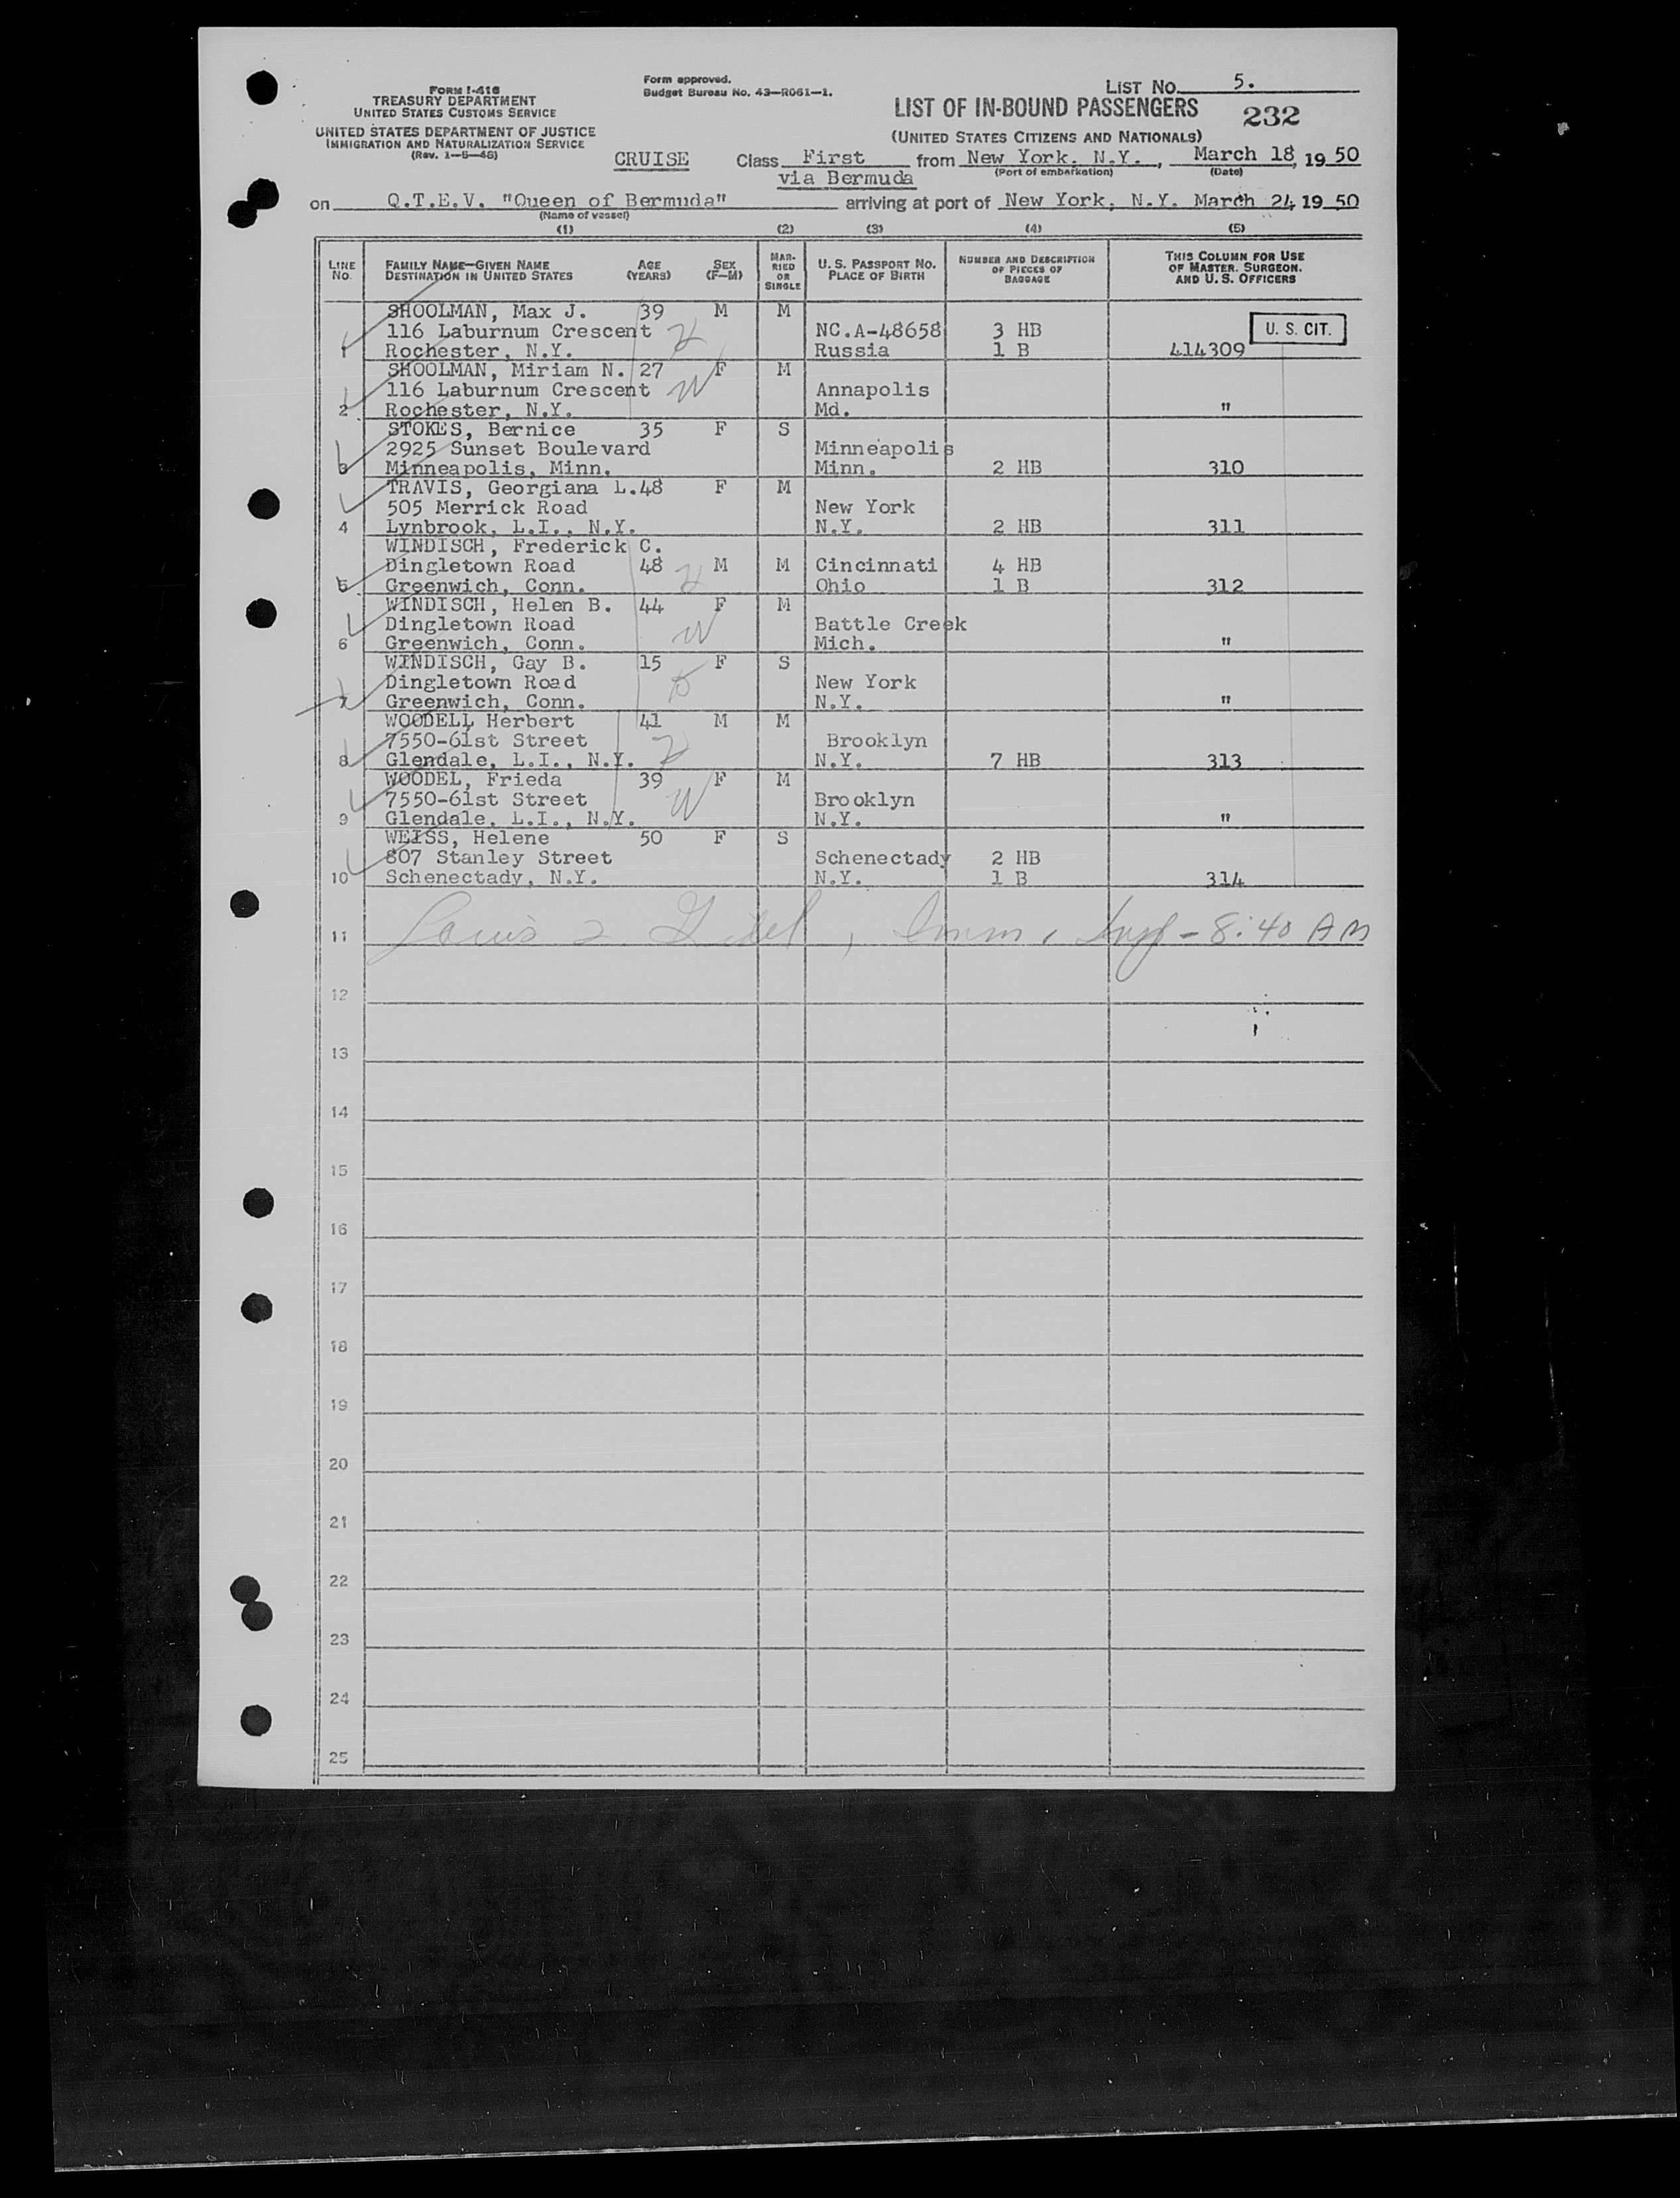 FORM I-418
TREASURY DEPARTMENT
UNITED STATES CUSTOMS SERVICE
UNITED STATES DEPARTMENT OF JUSTICE
IMMIGRATION AND NATURALIZATION SERVICE
(Rev. 1-5-48)
Form approved.
Budget Bureau No. 43-R061-1.
LIST No. 5.
LIST OF IN-BOUND PASSENGERS 232
(UNITED STATES CITIZENS AND NATIONALS)
CRUISE Class First from New York, N.Y., March 18, 19 50
via Bermuda (Port of embarkation) (Date)
on Q.T.E.V. "Queen of Bermuda" arriving at port of New York, N.Y. March 24 19 50
(Name of vessel)
(1) (2) (3) (4) (5)
LINE No. FAMILY NAME—GIVEN NAME DESTINATION IN UNITED STATES AGE (YEARS) SEX (F—M) MARRIED OR SINGLE U. S. PASSPORT No. PLACE OF BIRTH NUMBER AND DESCRIPTION OF PIECES OF BAGGAGE THIS COLUMN FOR USE OF MASTER, SURGEON, AND U. S. OFFICERS
SHOOLMAN, Max J. 39 M M
116 Laburnum Crescent H NC.A-48658 3 HB U. S. CIT.
1 Rochester, N.Y. Russia 1 B 414309
SHOOLMAN, Miriam N. 27 F M
116 Laburnum Crescent W Annapolis
2 Rochester, N.Y. Md. "
STOKES, Bernice 35 F S
2925 Sunset Boulevard Minneapolis
3 Minneapolis, Minn. Minn. 2 HB 310
TRAVIS, Georgiana L. 48 F M
505 Merrick Road New York
4 Lynbrook, L.I., N.Y. N.Y. 2 HB 311
WINDISCH, Frederick C.
Dingletown Road 48 H M M Cincinnati 4 HB
5 Greenwich, Conn. Ohio 1 B 312
WINDISCH, Helen B. 44 F M
Dingletown Road W Battle Creek
6 Greenwich, Conn. Mich. "
WINDISCH, Gay B. 15 F S
Dingletown Road New York
7 Greenwich, Conn. N.Y. "
WOODELL Herbert 41 M M
7550-61st Street H Brooklyn
8 Glendale, L.I., N.Y. N.Y. 7 HB 313
WOODEL, Frieda 39 F M
7550-61st Street W Brooklyn
9 Glendale, L.I., N.Y. N.Y. "
WEISS, Helene 50 F S
807 Stanley Street Schenectady 2 HB
10 Schenectady, N.Y. N.Y. 1 B 314
11 Louis , Imm. Insp - 8:40 AM
12
13
14
15
16
17
18
19
20
21
22
23
24
25